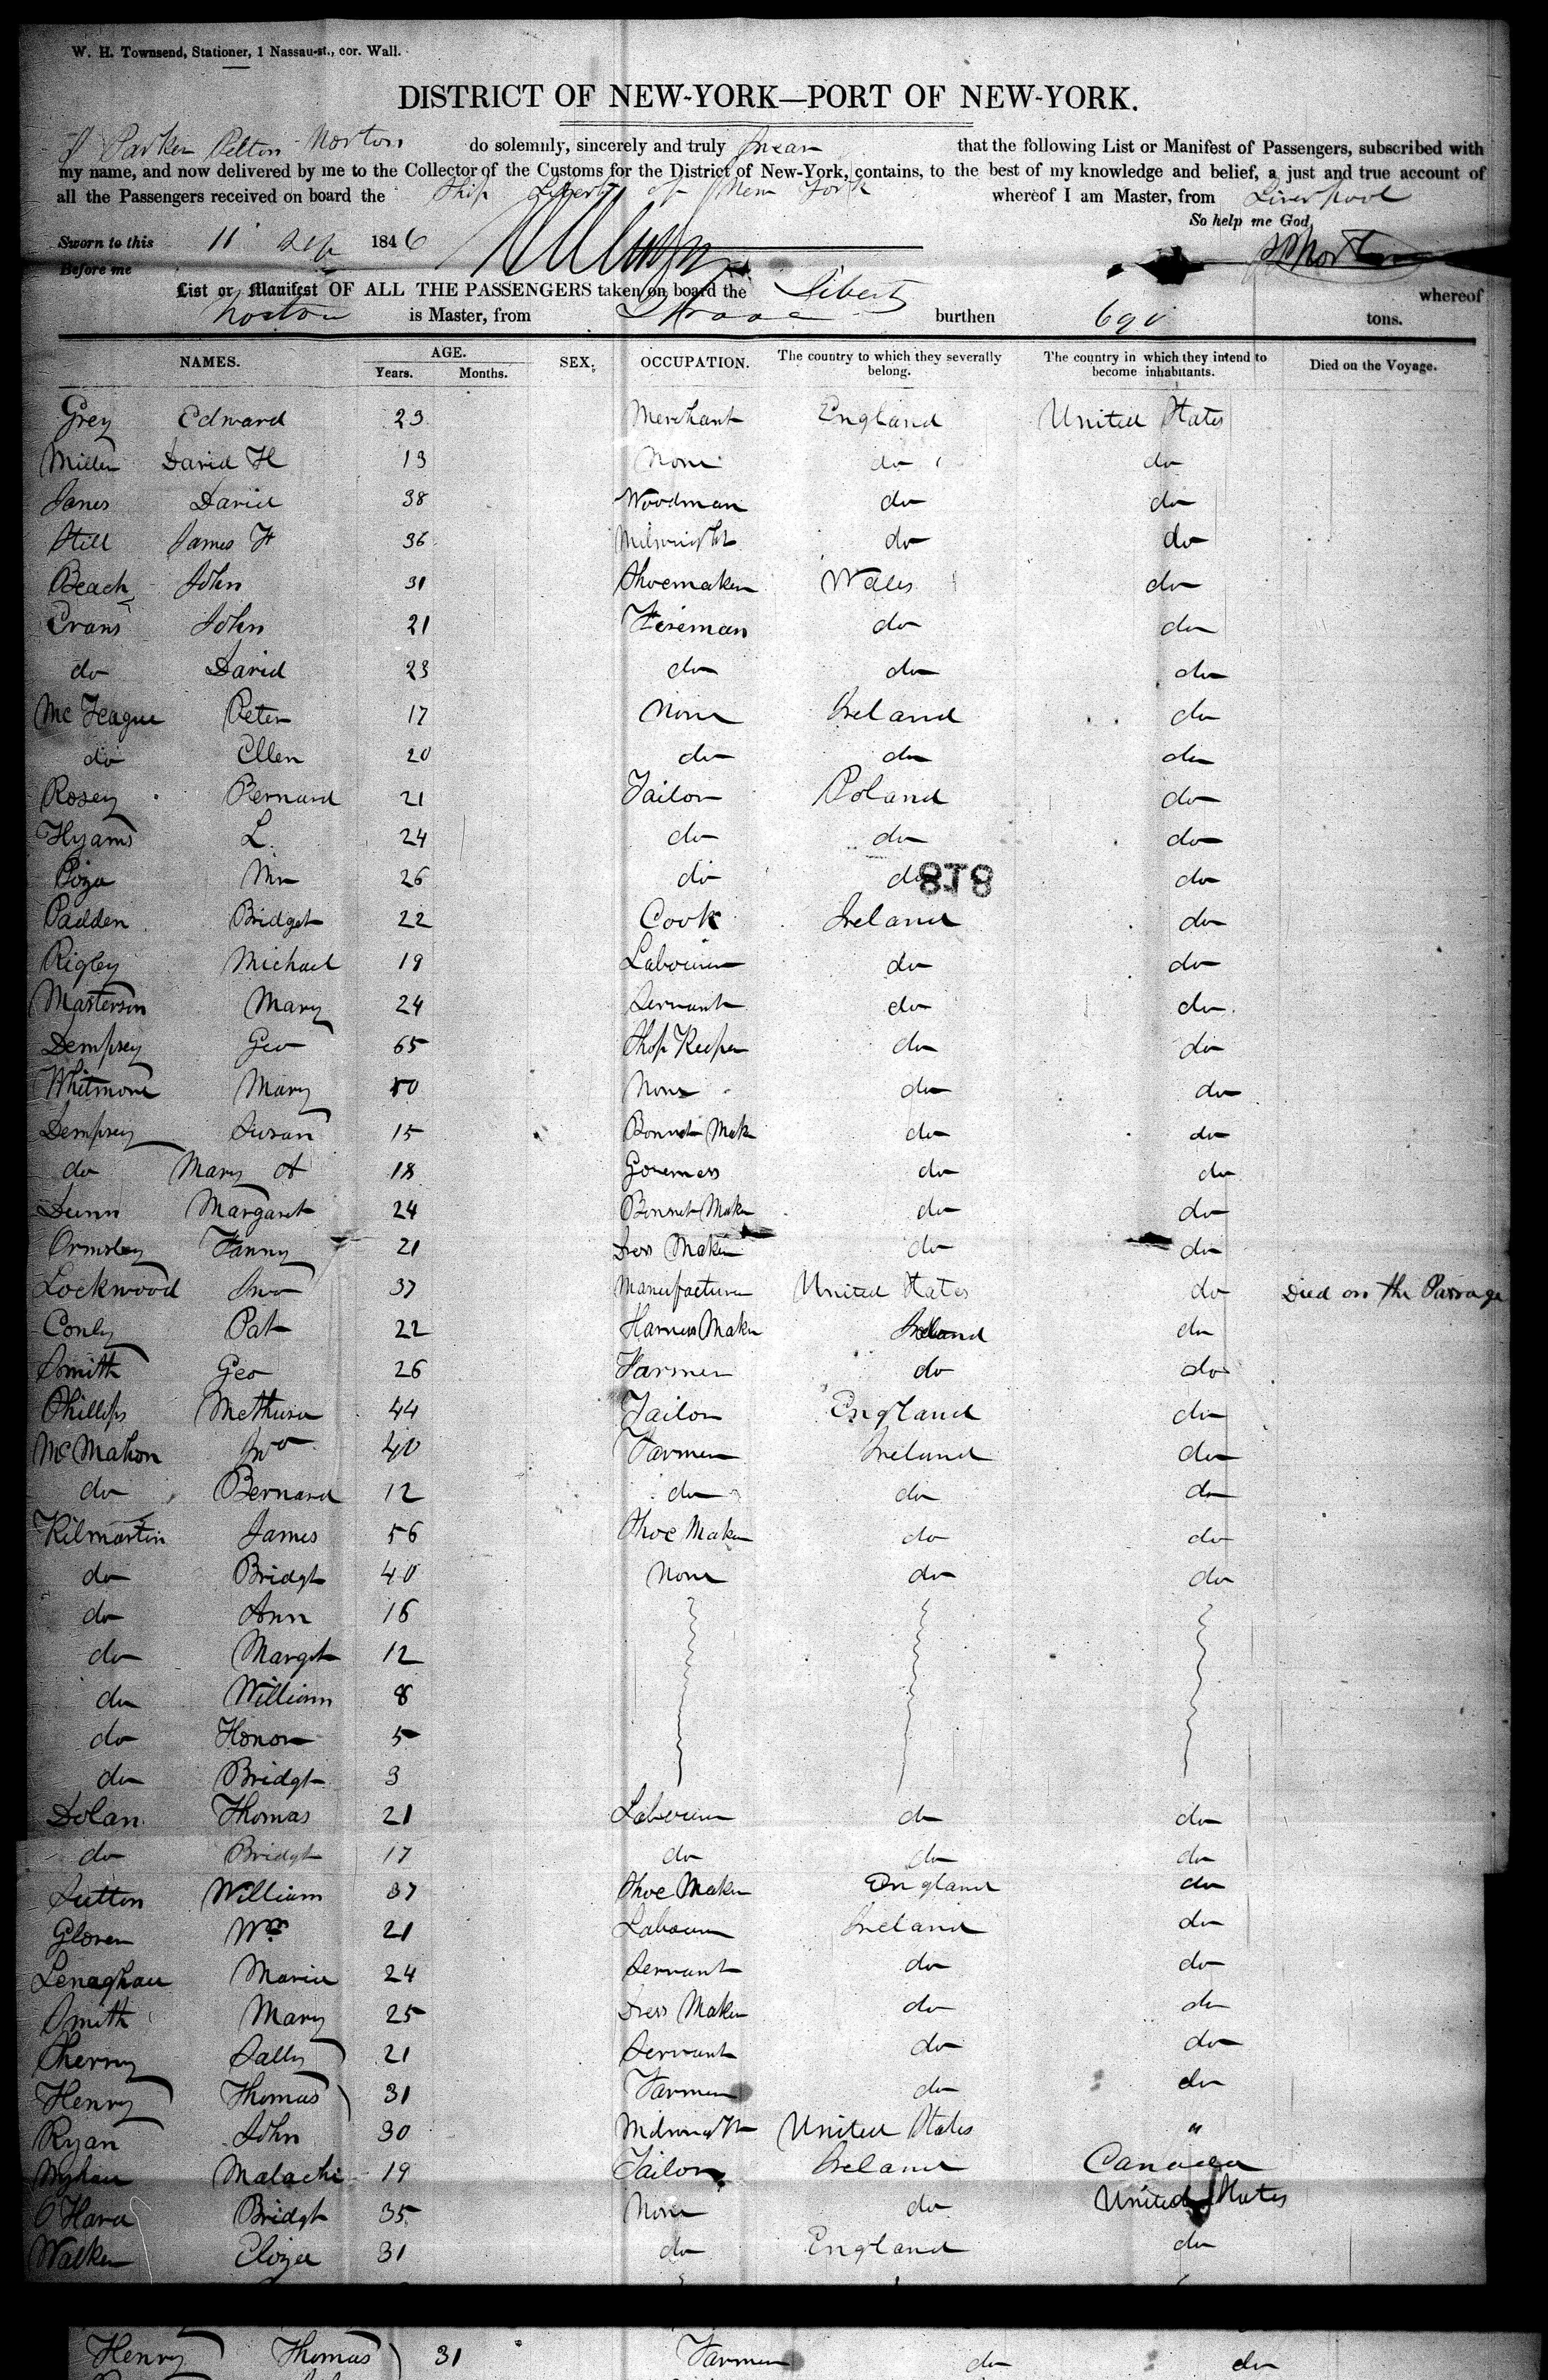 W. H. Townsend, Stationer, 1 Nassau-st., cor. Wall.
DISTRICT OF NEW-YORK—PORT OF NEW-YORK.
I Parker Pelton Norton do solemnly, sincerely and truly Swear that the following List or Manifest of Passengers, subscribed with
my name, and now delivered by me to the Collector of the Customs for the District of New-York, contains, to the best of my knowledge and belief, a just and true account of
all the Passengers received on board the Ship Liberty of New York whereof I am Master, from Liverpool
So help me God,
Sworn to this 11 Sep 1846
Before me
List or Manifest OF ALL THE PASSENGERS taken on board the Liberty whereof
Norton is Master, from burthen 691 tons.
NAMES. AGE. Years. Months. SEX. OCCUPATION. The country to which they severally belong. The country in which they intend to become inhabitants. Died on the Voyage.
Grey Edward 23 Merchant England United States
Miller David H 13 None do do
Janes David 38 Woodman do do
Still James H 36 Milwright do do
Beach John 31 Shoemaker Wales do
Evans John 21 Fireman do do
do David 23 do do do
McTeague Peter 17 None Ireland do
do Ellen 20 do do do
Rosey Bernard 21 Tailor Poland do
Hyams L. 24 do do do
Poza Mr 26 do do do
818
Padden Bridget 22 Cook Ireland do
Rigley Michael 19 Labourer do do
Masterson Mary 24 Servant do do
Dempsey Geo 65 Shop Keeper do do
Whitmore Mary 50 None do do
Dempsey Susan 15 Bonnet Mak do do
do Mary A 18 Governess do do
Dunn Margaret 24 Bonnet Maker do do
Ormsley Fanny 21 Dress Maker do do
Lockwood Jno 37 Manufacturer United States do Died on the Passage
Conly Pat 22 Harness Maker Ireland do
Smith Geo 26 Farmer do do
Phillips Methusa 44 Tailor England do
McMahon Jno 40 Farmer Ireland do
do Bernard 12 do do do
Kilmartin James 56 Shoe Maker do do
do Bridgt 40 None do do
do Ann 16
do Margt 12
do William 8
do Honor 5
do Bridgt 3
Dolan Thomas 21 Labourer do do
do Bridgt 17 do do do
Sutton William 37 Shoe Maker England do
Glover Wm 21 Labourer Ireland do
Lenaghau Maria 24 Servant do do
Smith Mary 25 Dress Maker do do
Sherry Sally 21 Servant do do
Henry Thomas 31 Farmer do do
Ryan John 30 United States "
Malachi 19 Tailor Ireland Canada
O'Hara Bridgt 35 None do United States
Walker Eliza 31 do England do
Henry Thomas 31 Farmer do do